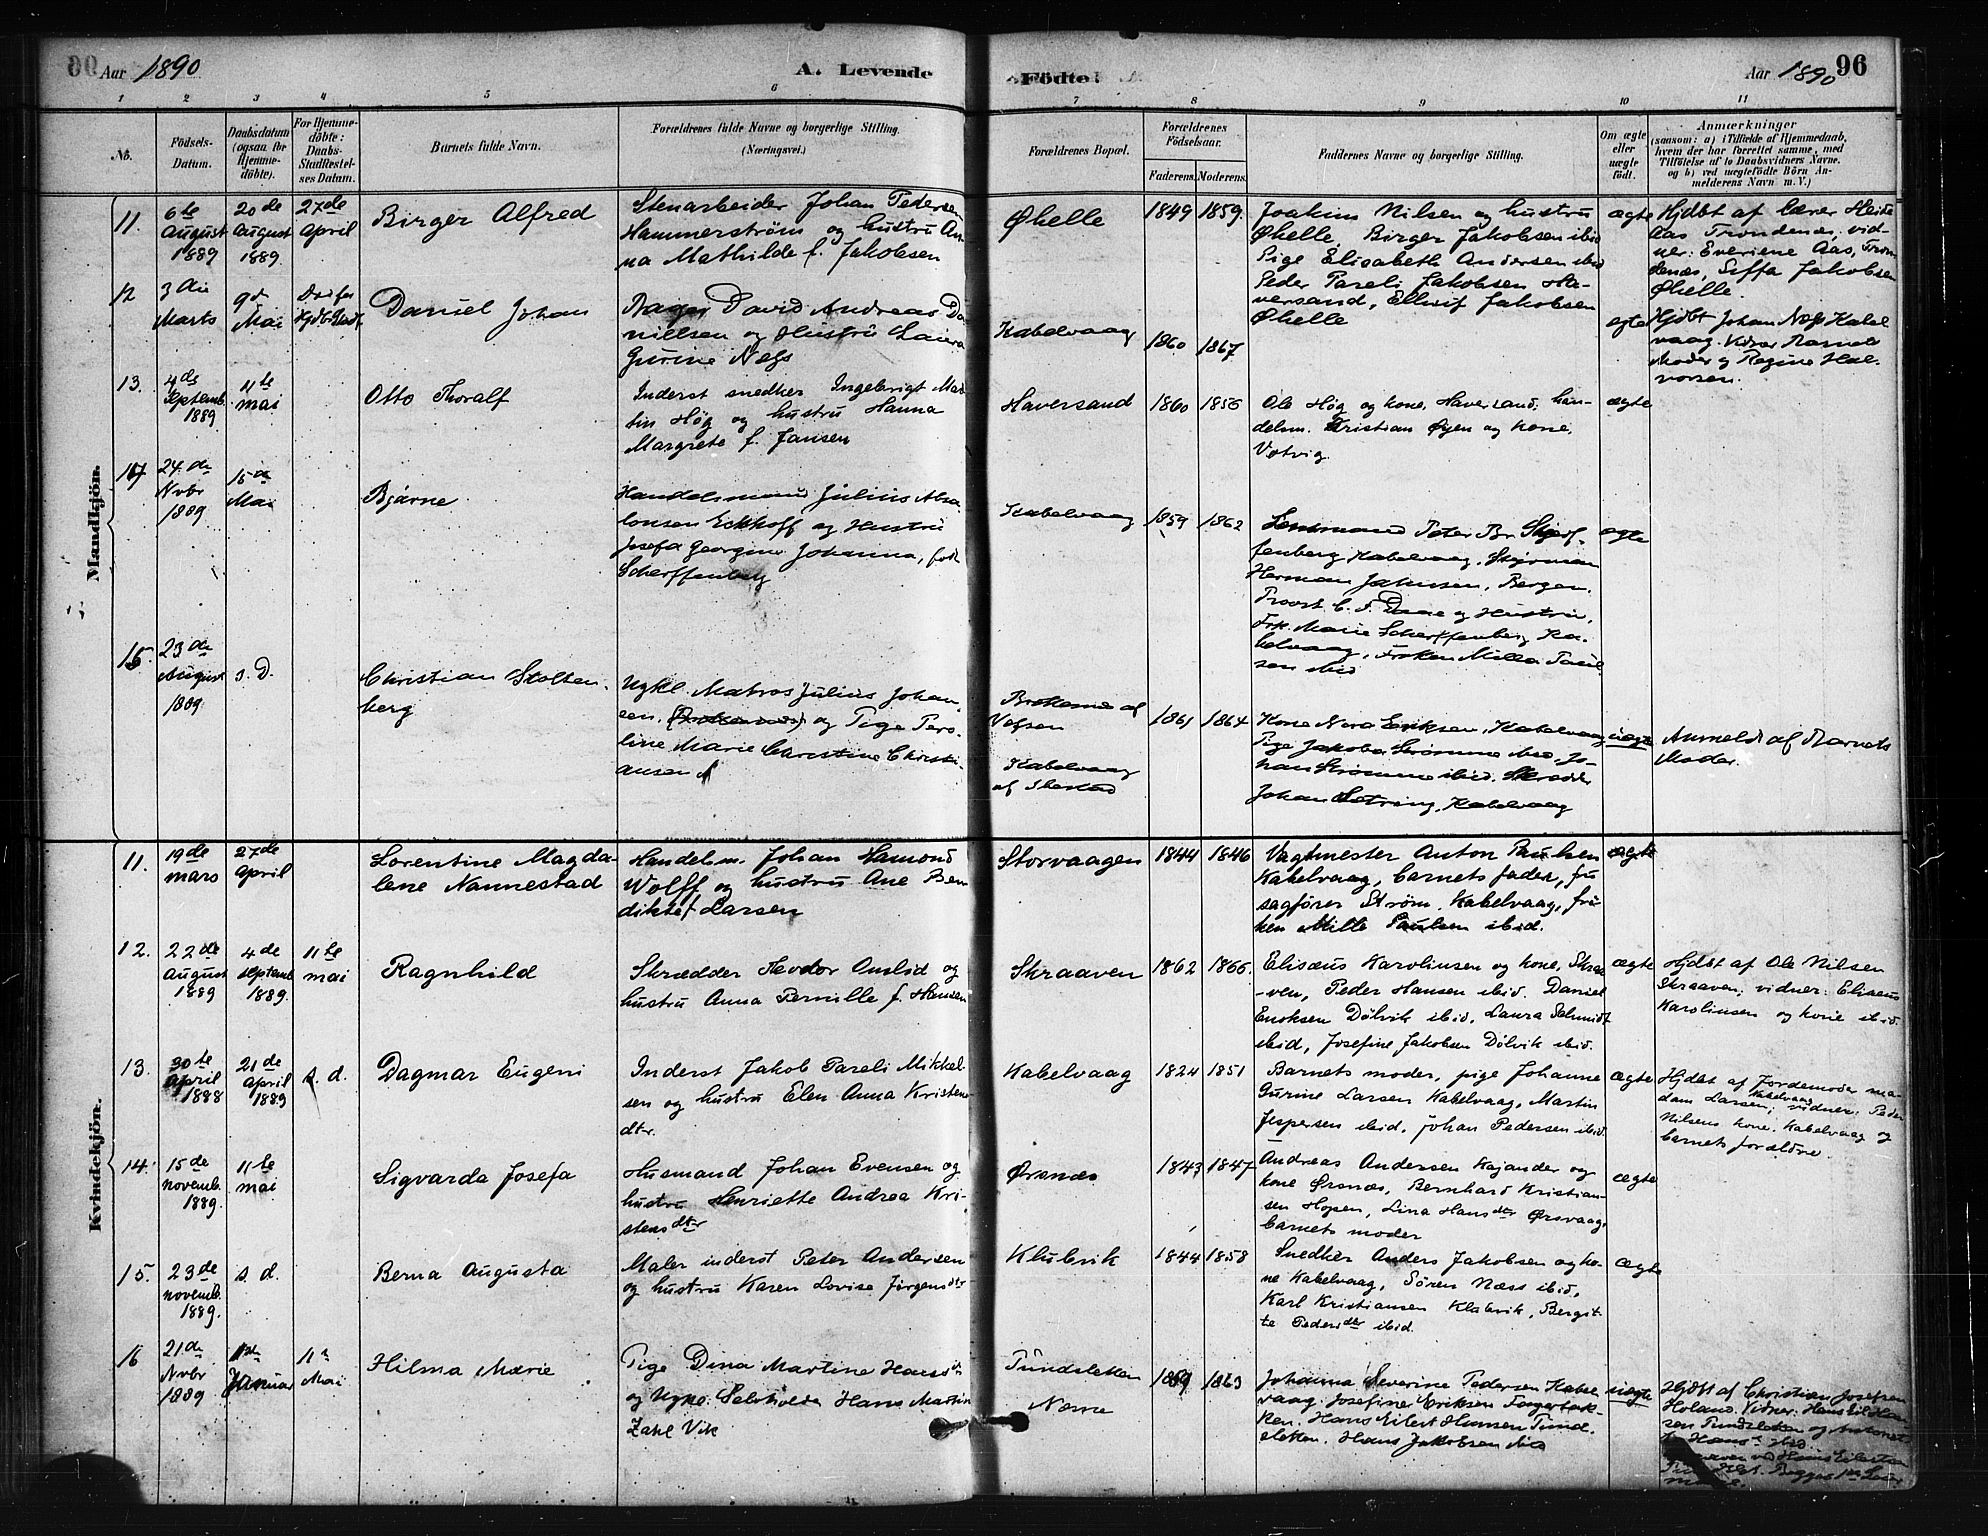 Aar 1890
A. Levende
Födte.
Aar 1890
96
1 2 3 4 5 6 7 8 9 10 11
No.
Födsels-
Datum.
Daabsdatum
(ogsaa for
Hjemme-
döbte).
For Hjemme-
döbte:
Daabs-
Stadfæstel-
ses Datum.
Barnets fulde Navn.
Forældrenes fulde Navne og borgerlige Stilling.
(Næringsvei.)
Forældrenes Bopæl.
Forældrenes
Födselsaar.
Faderens. Moderens.
Faddernes Navne og borgerlige Stilling.
Om ægte
eller
uægte
født.
Anmærkninger
(saasom: a) i Tilfælde af Hjemmedaab,
hvem der har forrettet samme, med
Tilföielse af to Daabsvidners Navne.
og b) ved uægtefödte Börn An-
melderens Navn m. V.)
Mandkjön.
11.
6te
August
1889
20de
August
1889.
27de
April
Birger Alfred
Stenarbeider Johan Pedersen
Hammerström og hustru An-
na Mathilde f. Jakobsen
Øhelle
1849 1859.
Joakim Nilsen og hustru
Øhelle, Birger Jakobsen ibid
Pige Elisabeth Andersen ibid
Peder Pareli Jakobsen
versand, Ellwif Jakobsen
Øhelle
ægte
Hjdbt af Lærer
Aas Trondenes, vid-
ner: Everiene Aas, Tron
denæs, Siffa Jakobsen
Øhelle.
12
3die
Marts
9de
Mai
Daniel Johan
David Andreas Da
nielsen og Hustru Laura
Gurine Næss
Kabelvaag
1860 1867
ægte
Hjdbt Johan Næss Kabel
vaag. Vidner Barnets
Moder og Regine Hal-
vorsen.
13.
4de
Septemb.
1889
11te
mai
Otto Thoralf
Inderst snedker Ingebrigt Mar
tin Høg og hustru Hanna
Margrete f. Jansen
Haversand
1860 1856
Ole Høg og kone, Haversand, han-
delsm. Kristian Øyen og kone,
Votvig
ægte
24de
Nvbr
1889
15de
Mai
Bjarne
Handelsmand Julius Absa
lonsen Eckhoff og Hustru
Josefa Georgine Johanna, født
Scherffenberg
Kabelvaag
1859 1862
Lensmand Peter Br. Scherf-
fenberg, Kabelvaag, Styrman
Herman Jakobsen, Bergen,
Provst C. F. Daae og Hustru,
Frk. Marie Scherffenberg Ka-
belvaag, Frøken Milla Paul
sen ibid
ægte
15.
23de
August
1889
s. D.
Christian Stolten-
berg
Ugkl. Matros Julius Johan
sen, og Pige Pero-
line Marie Christine Christi-
ansen
af
Vefsen
Kabelvaag
af Ibestad
1861 1864
Kone Nora Eriksen, Kabelvaag
Pige Jakoba Strømme ibid, Jo-
han Strømme ibid. Skrædder
Johan Sotring, Kabelvaag
uægte
Anmeldt af Barnets
Moder.
Kvindekjön.
11.
19de
mars
27de
april
Lorentine Magda-
lene Nannestad
Handelsm. Johan Hamond
Wolff og hustru Ane Ben
dikte f. Larsen
Storvaagen
1844 1846
Vagtmester Anton Paulsen
Kabelvaag, barnets fader, fru
sagfører Strøm, Kabelvaag, frö-
ken Mille Paulsen ibid.
ægte
12.
22de
August
1889
4de
septemb.
1889.
11te
mai
Ragnhild
Skrædder Teodor Amlid og
hustru Anna Pernille f. Hansen
Skraaven
1862 1866.
Elisæus Karolinsen og kone, Skraa
-ven, Peder Hansen ibid. Daniel
Enoksen Dölvik ibid, Laura Schmidt
ibid, Josefine Jakobsen Dölvik ibid.
ægte
Hjdbt af Ole Nilsen
Skraaven, vidner: Elisæus
Karolinsen og kone ibid.
13.
30te
April
1888
21de
april
1889
s. d.
Dagmar Eugeni
Inderst Jakob Pareli Mikkel-
sen og hustru Elen Anna Kristens
dtr.
Kabelvaag
1824 1851
Barnets moder, pige Johanne
Gurine Larsen Kabelvaag, Martin
Jespersen ibid, Johan Pedersen ibid.
ægte
Hjdbt af Jordemoder ma-
dam Larsen, Kabelvaag, vidner: Peder
Nilsens kone, Kabelvaag og
barnets forældre.
14.
15de
novemb.
1889.
11te
mai
Sigvarda Josefa
Husmand Johan Evensen og
hustru Henriette Andrea Kri-
stensdtr
Ørsnæs
1843 1847
Andreas Andersen Kajander og
kone Ørsnæs, Bernhard Kristian-
sen Hopen, Lina Hansdtr Ørsvaag,
barnets moder
ægte
15.
23de
novemb.
1889.
s. d.
Berna Augusta
Maler inderst Peter Andersen
og hustru Karen Lovise Jörgensdtr
Klubvik
1844 1858
Snedker Anders Jakobsen og ko-
ne Kabelvaag, Sören Næss ibid,
Karl Kristiansen Klubvik, Bergit-
te Pedersdtr ibid.
ægte
16
21de
Nvbr
1889
Januar
11te
Mai
Hilma Marie
Pige Dina Martine Hansdtr
og Ugkr. Hans Martin
Zahl Vik
Tindsletten
1869 1863
Johanna Severine Pedersen Kabel
vaag. Josefine Eriksen
Hans Eilert Hansen Tind
sletten. Hans Jakobsen ibid
uægte
Hjdbt af Christian Josefsen
Holand. Vidner: